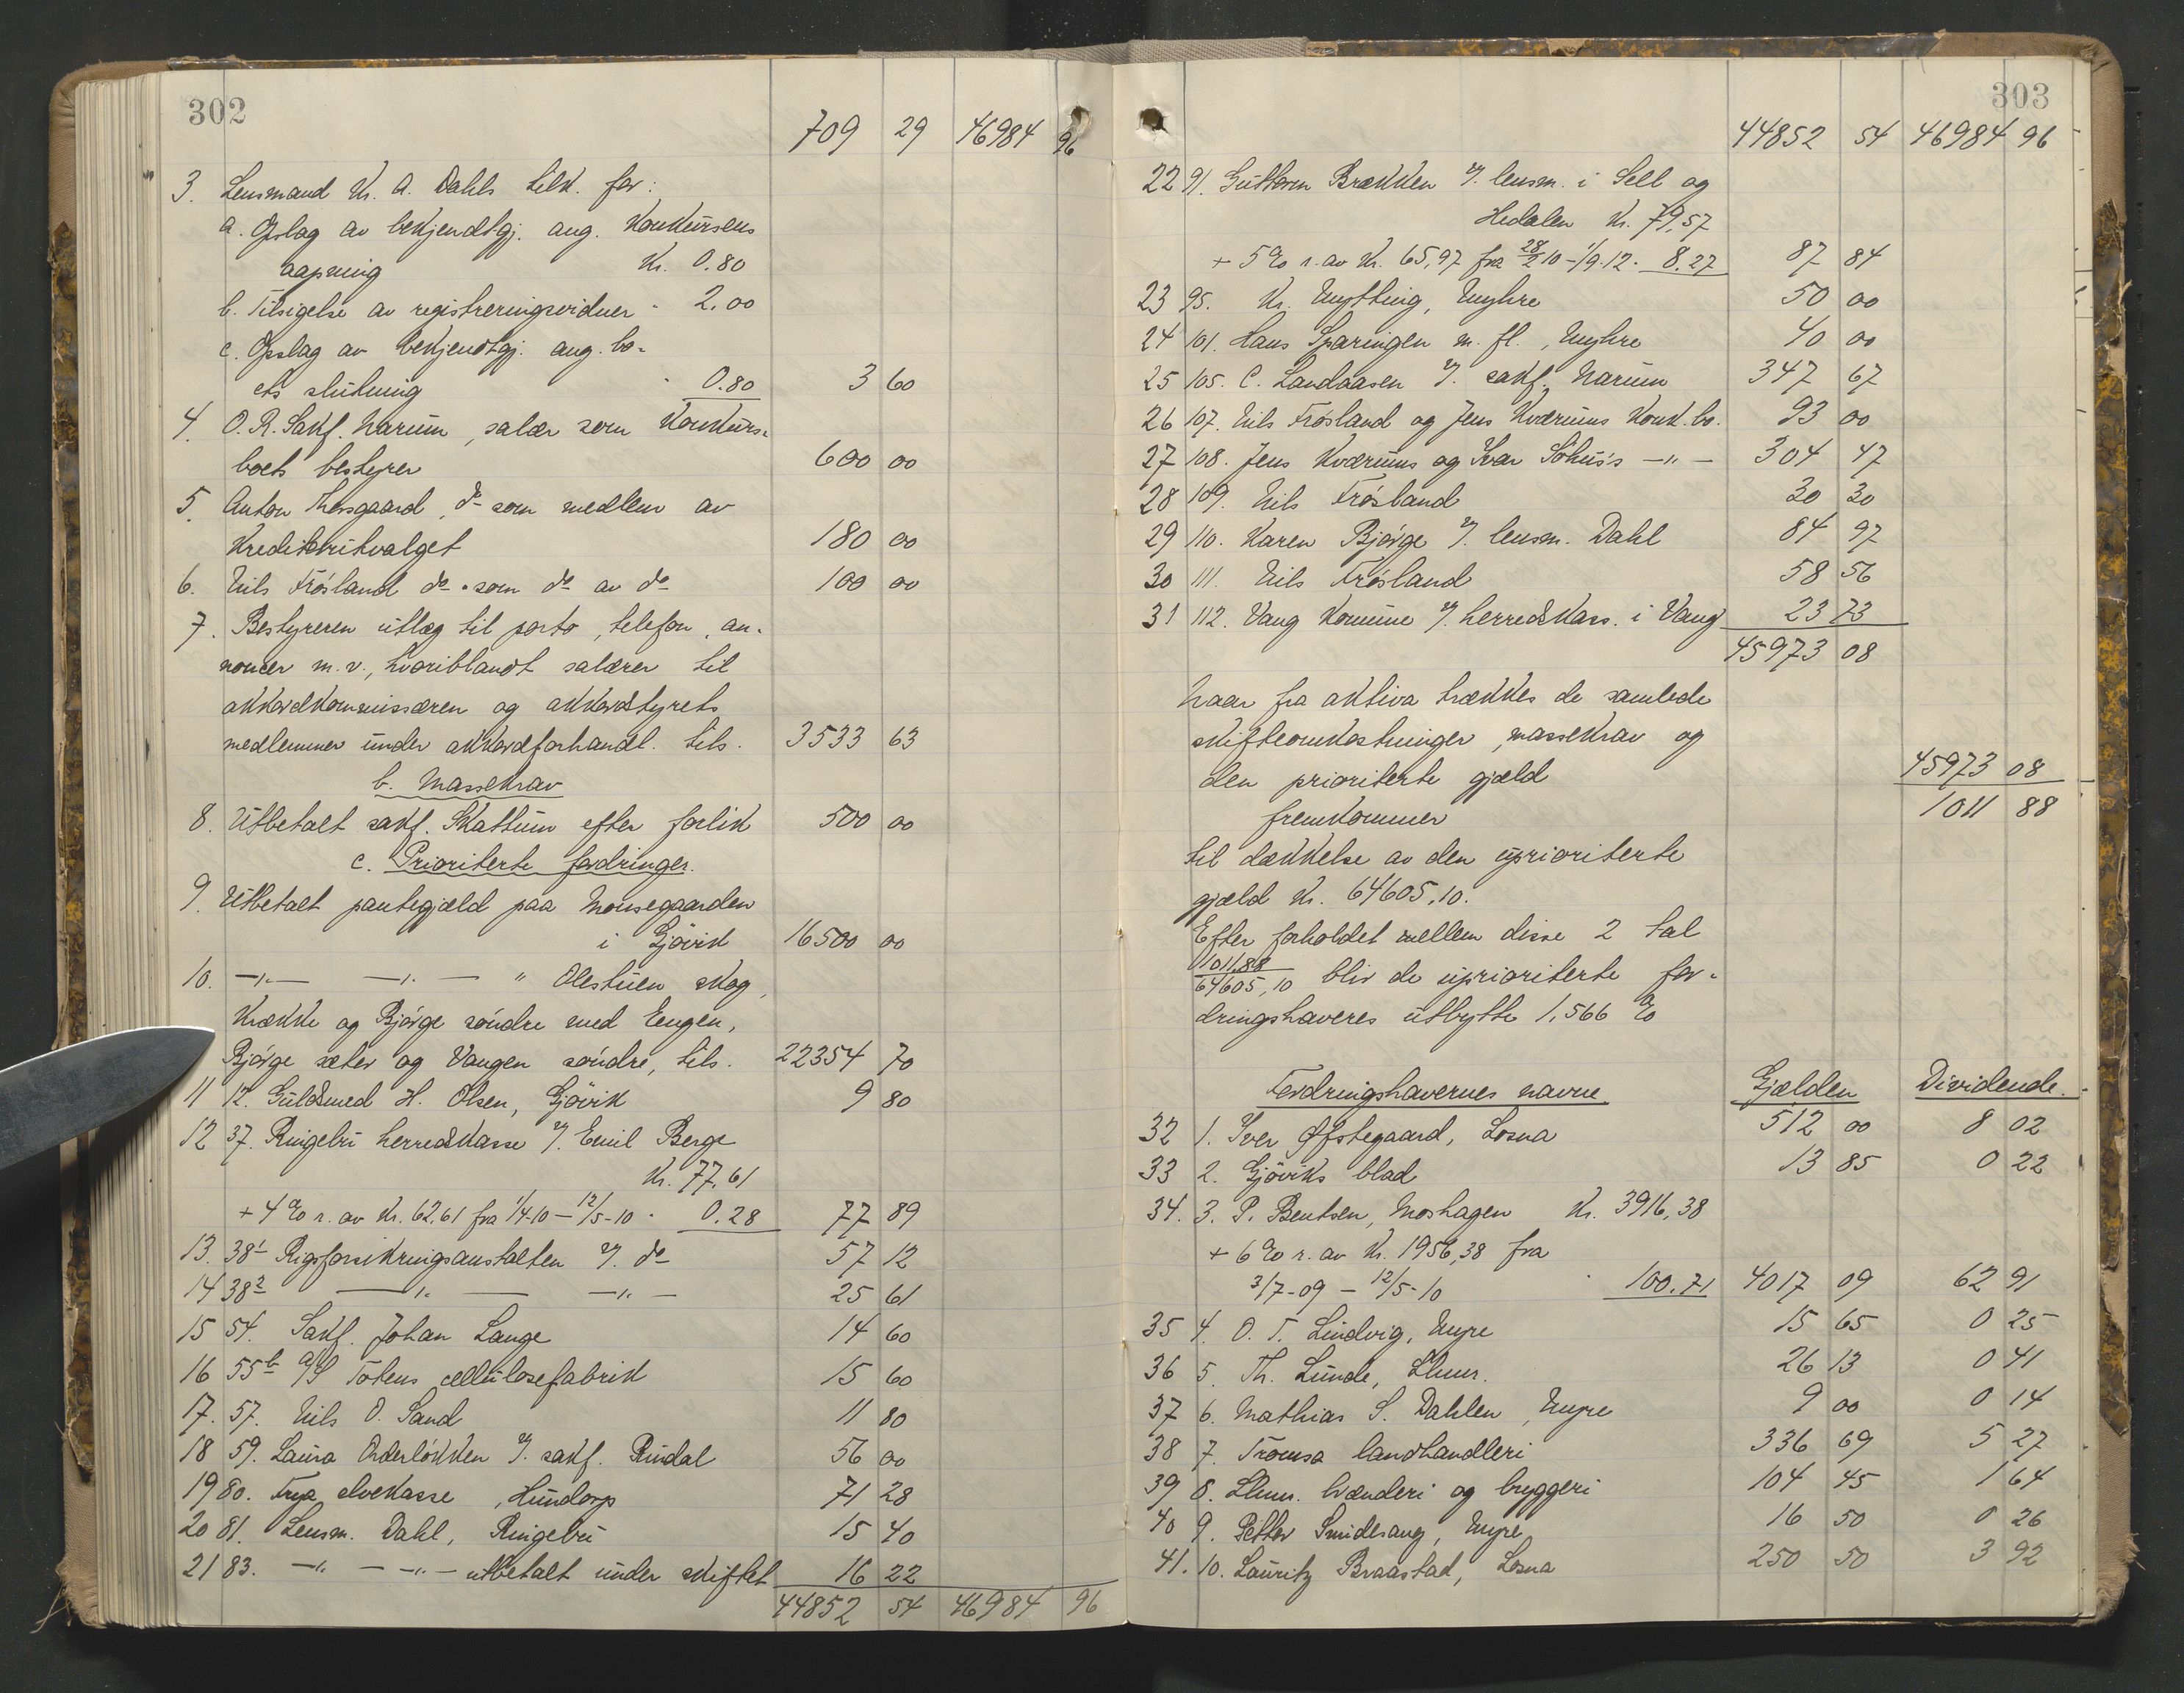 302
709 29 46984 96
3. Lensmand Kr. A. Dahls tilk. for:
a. Opslag av bekjendtgj. ang. konkursens
aapning Kr. 0.80
b. Tilsigelse av registreringsvidner " 2.00
c. Opslag av bekjendtgj. ang. bo-
ets slutning " 0.80 3 60
4. O.R.Sakf. Narum, salær som konkurs-
boets bestyrer 600 00
5. Anton Thorsgaard, do som medlem av
Kreditorutvalget 180 00
6. Nils Frösland do som do av do 100 00
7. Bestyreren utlæg til porto, telefon, an-
noncer m.v., hvoriblandt salærer til
akkordkommissæren og akkordstyrets
medlemmer under akkordforhandl. tils. 3533 63
b. Massekrav
8. Utbetalt sakf. Skattum efter forlik 500 00
c. Prioriterte fordringer.
9. Utbetalt pantegjæld paa Mousegaarden
i Gjövik 16500 00
10. —"— —"— " Olestuen skog,
Krække og Bjørge söndre med Engen,
Bjørge sæter og Vangen söndre, tils. 22354 70
11 12. Guldsmed H. Olsen, Gjövik 9 80
12 37. Ringebu herredskasse v/. Emil Berge
Kr. 77.61
+ 4 % r. av Kr. 62.61 fra 1/4-10 — 12/5-10 " 0.28 77 89
13. 38¹ Rigsforsikringsanstalten v/. do 57 12
14 38² —"— —"— 25 61
15 54. Sakf. Johan Lange 14 60
16 55b A/S Totens cellulosefabrik 15 60
17. 57. Nils O. Sand 11 80
18 59. Laura Onderlökken v/. sakf. Rindal 56 00
19 80. Frya elvekasse, Hundorp 71 28
20 81. Lensm. Dahl, Ringebu 15 40
21 83. —"— —"— utbetalt under skiftet 16 22
44852 54 46984 96
303
44852 54 46984 96
22 91. Guttorm Brækken v/. lensm. i Sell og
Hedalen Kr. 79,57
+ 5 % r. av Kr. 65,97 fra 28/2 10 — 1/9-12 - 8.27 87 84
23 95. Kr. Nyfting, Nyhre 50 00
24 101. Hans Sparingen m. fl., Nyhre 40 00
25 105. C. Landaasen v/. sakf. Narum 347 67
26 107. Nils Frösland og Jens Kværums Konk.bo. 93 00
27 108. Jens Kværums og Ivar Söhus's —"— 304 47
28 109. Nils Frösland 30 30
29 110. Karen Bjørge v/. lensm. Dahl 84 97
30 111. Nils Frösland 58 56
31 112. Vang Kommune v/. herredskass. i Vang 23 73
45973 08
Naar fra aktiva trækkes de samlede
skifteomkostninger, massekrav og
den prioriterte gjæld 45973 08
fremkommer 1011 88
til dækkelse av den uprioriterte
gjæld Kr. 64605,10.
Efter forholdet mellem disse 2 tal
1011,88/64605,10 blir de uprioriterte for-
dringshaveres utbytte 1,566 %
Fordringshavernes navne. Gjælden Dividende.
32 1. Iver Øfstegaard, Losna 512 00 8 02
33 2. Gjöviks blad 13 85 0 22
34. 3. P. Bentsen, Moshagen Kr. 3916,38
+ 6 % r. av Kr. 1956,38 fra
3/7-09 — 12/5-10 " 100.71 4017 09 62 91
35 4. O. T. Lindvig, Nyre 15 65 0 25
36 5. Th. Lunde, Lhmr. 26 13 0 41
37 6. Mathias S. Dahlen, Nyre 9 00 0 14
38 7. Tromsa landhandleri 336 69 5 27
39 8. Lhmr. brænderi og bryggeri 104 45 1 64
40 9. Petter Smidesang, Nyre 16 50 0 26
41. 10. Lauritz Braastad, Losna 250 50 3 92